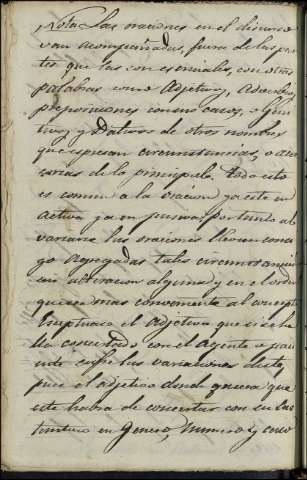 Nota: las oraciones en el discurso
van acompañadas, fuera de las par
tes que las son esenciales, con otras
palabras como Adjetivos, Adverbios,
preposiciones con sus casos, o Geni
tivos, y Dativos de otros nombres
que espresan circunstancias, o acce
sorias de lo principal. Todo esto
es comun a la oracion ya este en
activa ya en pasiva, por tanto al
variarse las oraciones llevan consi
go agregadas tales circunstancias
sin alteracion alguna y en el orden
que sea mas conveniente al
Eseptuase el adjetivo que se ha
lla concertado con el Agente o paci
ente sufre las variaciones de este,
pues el adjetivo donde quiera que
este habra de concertar con su sus
tantivo en Genero, Numero y caso